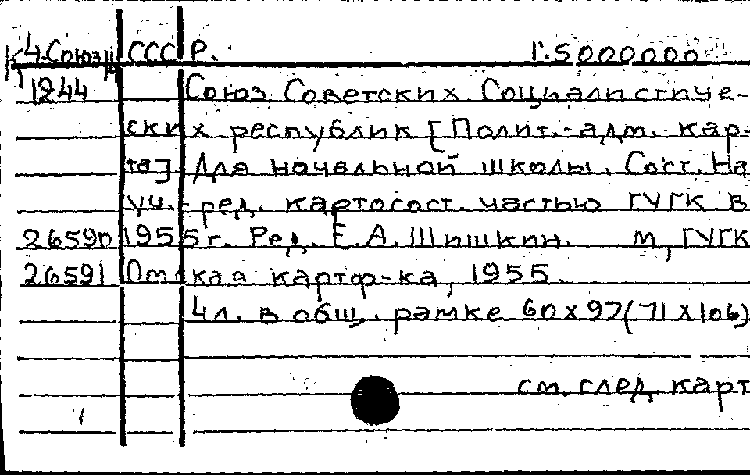 4. Союз СССР. 1:5000000
1244 Союз Советских Социалистиче-
ских республик [Полит.-адм. кар-
та] Для начальной школы. Сост. На
уч.-ред. картосост. частью ГУГК в
26590 1955 г. Ред. Е.А. Шишкин. М, ГУГК
26591 Омская картф-ка, 1955.
4л. в общ. рамке 60х97(71х106)
см. след карт